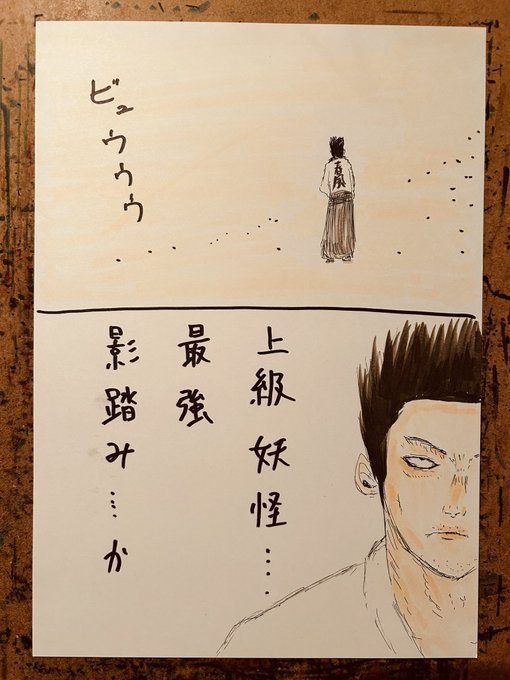 ビュウウウ
上級妖怪‥‥
最強
影踏み…か